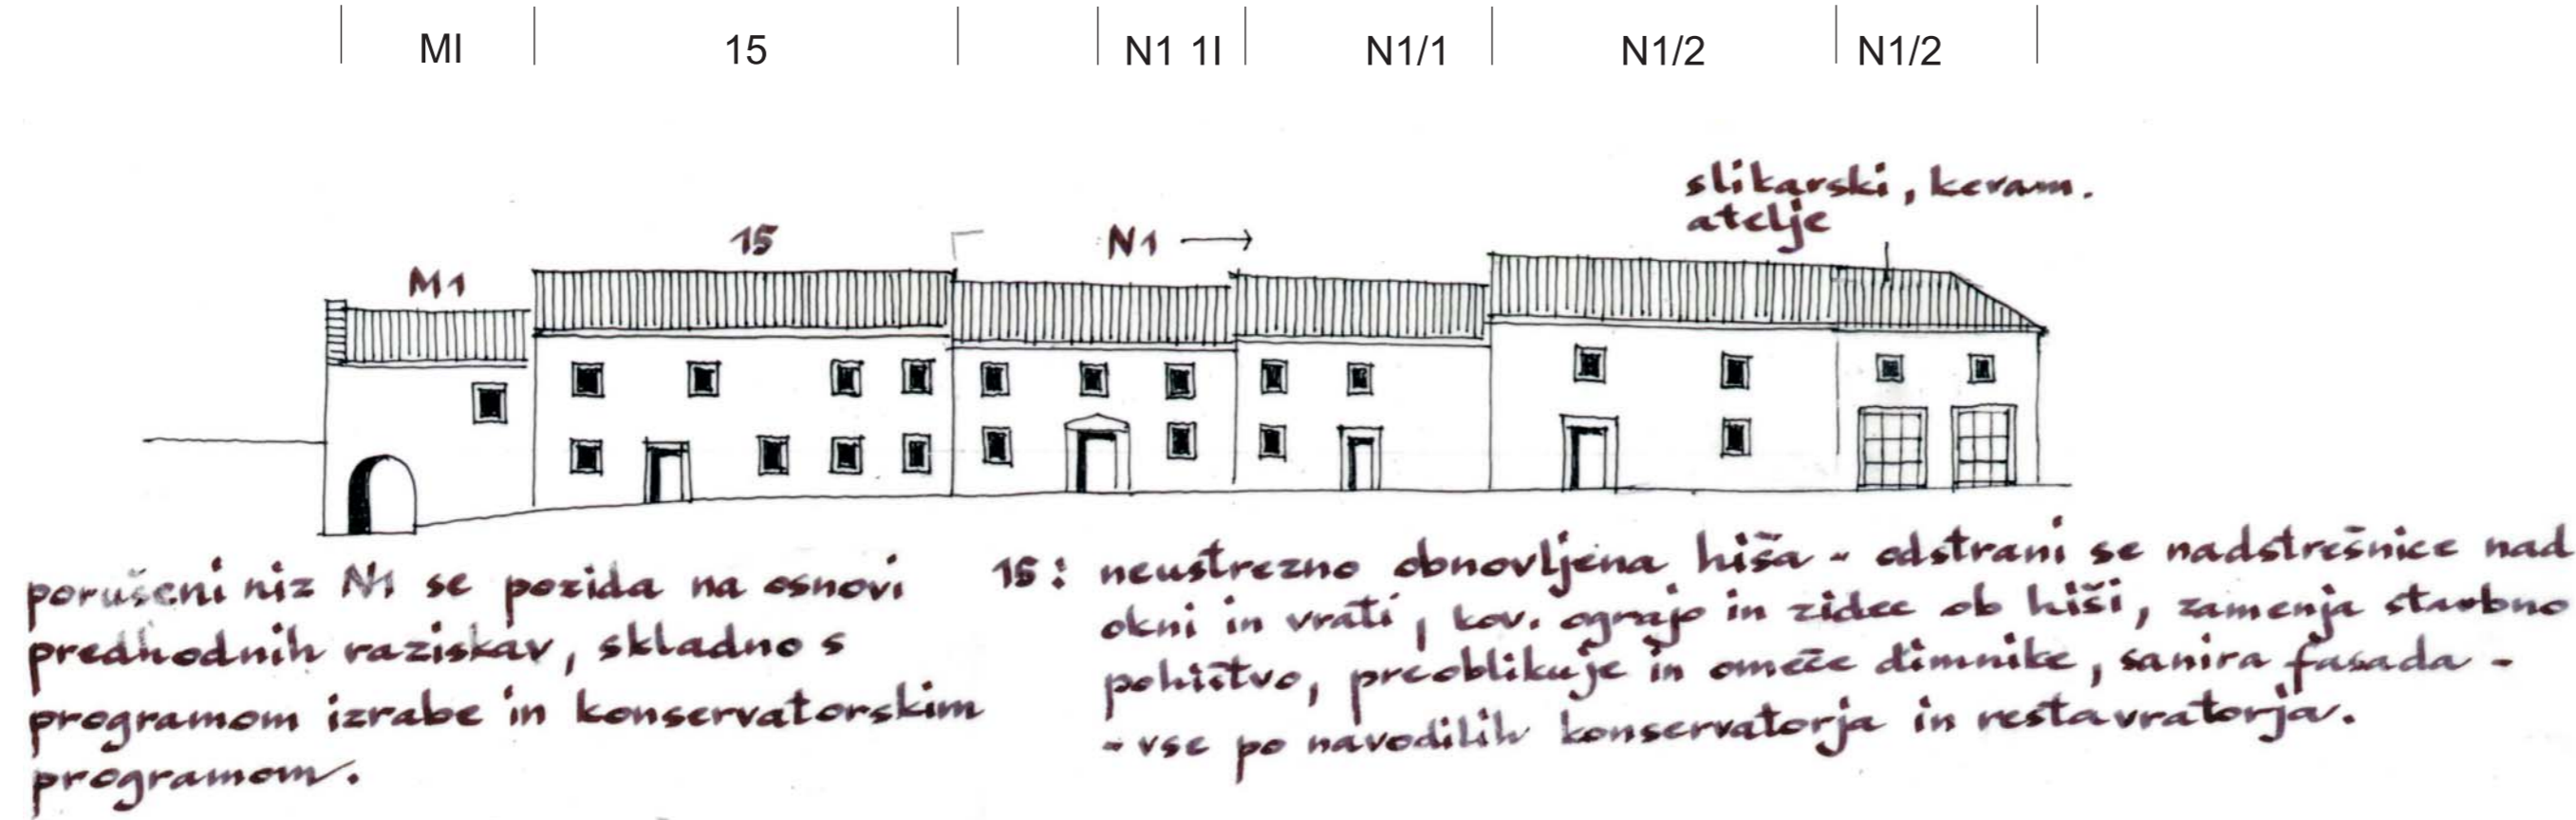 MI 15 N1 1I N1/1 N1/2 N1/2
slikarski, keram.
atelje
15 N1 →
M1
porušeni niz N1 se pozida na osnovi
predhodnih raziskav, skladno s
programom izrabe in konservatorskim
programom.
15: neustrezno obnovljena hiša - odstrani se nadstrešnice nad
okni in vrati, kov. ograjo in zidec ob hiši, zamenja stavbno
pohištvo, preoblikuje in omeče dimnike, sanira fasada -
- vse po navodilih konservatorja in restavratorja.